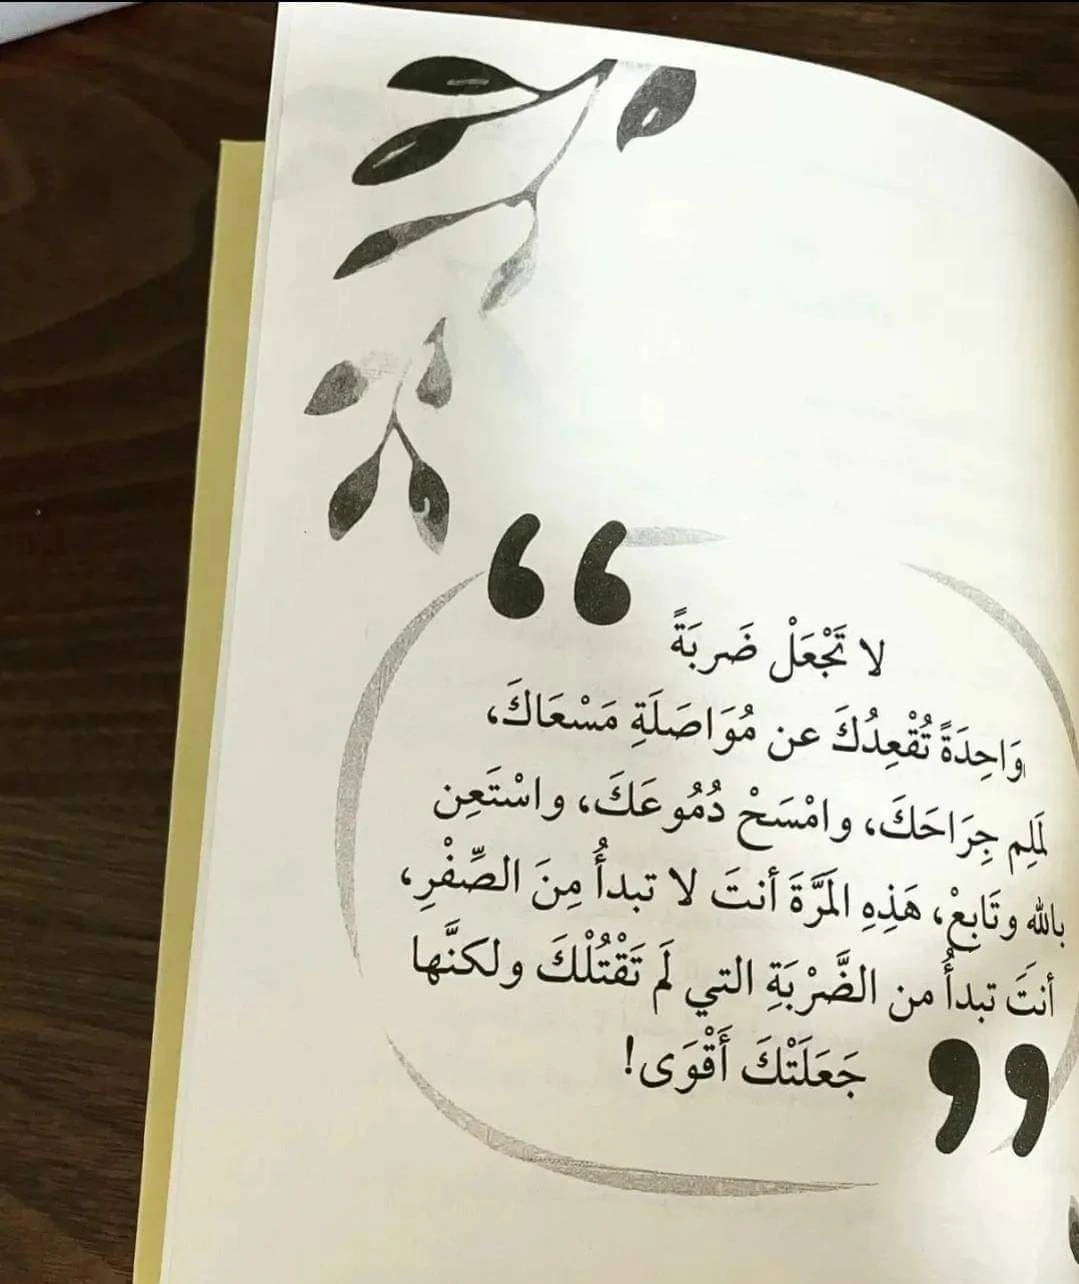 لا تَجْعَلْ ضَربَةً
وَاحِدَةً تُقْعِدُكَ عن مُوَاصَلَةِ مَسْعَاكَ،
لَملِم جِرَاحَكَ، وامْسَحْ دُمُوعَكَ، واسْتَعِن
بالله وتَابِعْ، هَذِهِ المَرَّةَ أنتَ لا تبدأُ مِنَ الصِّفْرِ،
أنتَ تبدأُ من الضَّرْبَةِ التي لَم تَقْتُلْكَ ولكنَّها
جَعَلَتْكَ أَقْوَى!